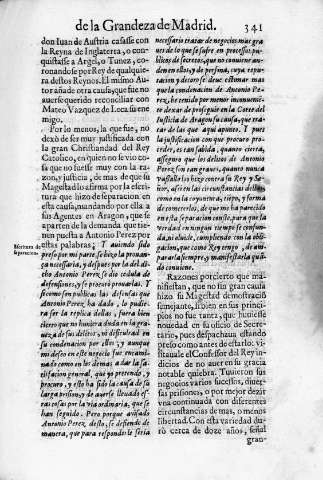 de la Grandeza de Madrid. 341
don Iuan de Austria casasse con
la Reyna de Inglaterra, o con-
quistasse a Argel, o Tunez, co-
ronandose por Rey de qualquie
ra destos Reynos. El mismo Au-
tor añade otra causa, que fue no
auerse querido reconciliar con
Mateo Vazquez de Loca su ene
migo.
Por lo menos, la que fue, no
dexò de ser muy justificada con
la gran Christiandad del Rey
Catolico, en quien no se vio co-
sa que no fuesse muy con la ra-
zon, y justicia, de mas de que su
Magestad lo afirma por la escri-
tura que hizo de separacion en
esta causa, mandando por ella a
sus Agentes en Aragon, que se
aparten de la demanda que tie-
nen puesta a Antonio Perez por
estas palabras; Y auiendo sido
preso por mi parte, se hizo la prouan-
ça necessaria, y despues por la del di-
cho Antonio Perez, se dio cedula de
defensiones, y se procurò prouarlas. Y
si como son publicas las defensas que
Antonio Perez, ha dado, lo pudie-
ra ser la replica dellas, fuera bien
cierto que no huuiera duda en la gra-
uieza de sus delitos, ni dificultad en
su condenacion por ellos; y aunque
mi deseo en este negocio fue encami-
nado como en los demas a dar la sa-
tisfacion general, que yo pretendo, y
procuro, y esto ha sido la causa de su
larga prision, y de auerse lleuado es-
tas cosas por la via ordinaria, que se
han seguido. Pero porque auisado
Antonio Perez, desto, se defiende de
manera, que para responderle seria
necessario tratar de negocios mas gra-
ues de lo que se sufre en processos pu-
blicos, de secretos, que no conuiene an-
den en ellos, y de personas, cuya repa-
racion, y estimacion se deue tener en mas
que la condenacion de Antonio Pe-
rez, he tenido por menor inconuenien-
te dexar de proseguir en la Corte del
Iusticia de Aragon su causa, que tra-
tar de las que aqui apunto. Y pues
la justificacion con que procuro pro-
ceder, es tan sabida, quanto cierta,
asseguro que los delitos de Antonio
Perez son tan graues, quanto nunca
vassallo los hizo contra su Rey y Se-
ñor, assi en las circunstancias dellos
como en la conjuntura, tiempo, y forma
de cometerlos, de que me ha parecido
en esta separacion conste, para que la
verdad en ningun tiempo se confun-
da, ni oluide, cumpliendo con la obli-
gacion, que como Rey tengo, de am-
pararla siempre, y manifestarla quã-
do conuiene.
Razones por cierto que ma-
nifiestan, que no sin gran causa
hizo su Magestad demostracion
semejante, si bien en sus princi-
pios no fue tanta, que huuiesse
nouedad en su oficio de Secre-
tario, pues despachaua estando
preso como antes de estarlo: vi-
sitauale el Confessor del Rey in-
dicios de no auer en su gracia
notable quiebra. Tuuieron sus
negocios varios sucessos, diuer-
sas prisiones, o por mejor dezir
vna continuada con diferentes
circunstancias de mas, o menos
libertad. Con esta variedad du-
rò cerca de doze años, señal
gran-